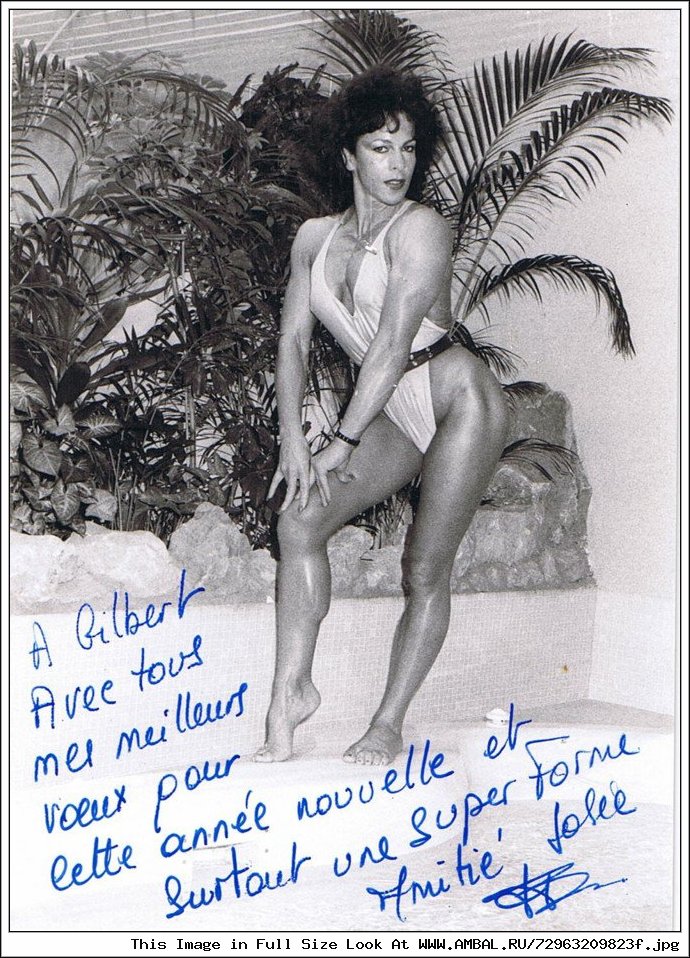 A Gilbert
Avec tous
mes meilleurs
voeux pour
cette année nouvelle et
surtout une super forme
Amitié, Josée
This Image in Full Size Look At WWW.AMBAL.RU/72963209823f.jpg